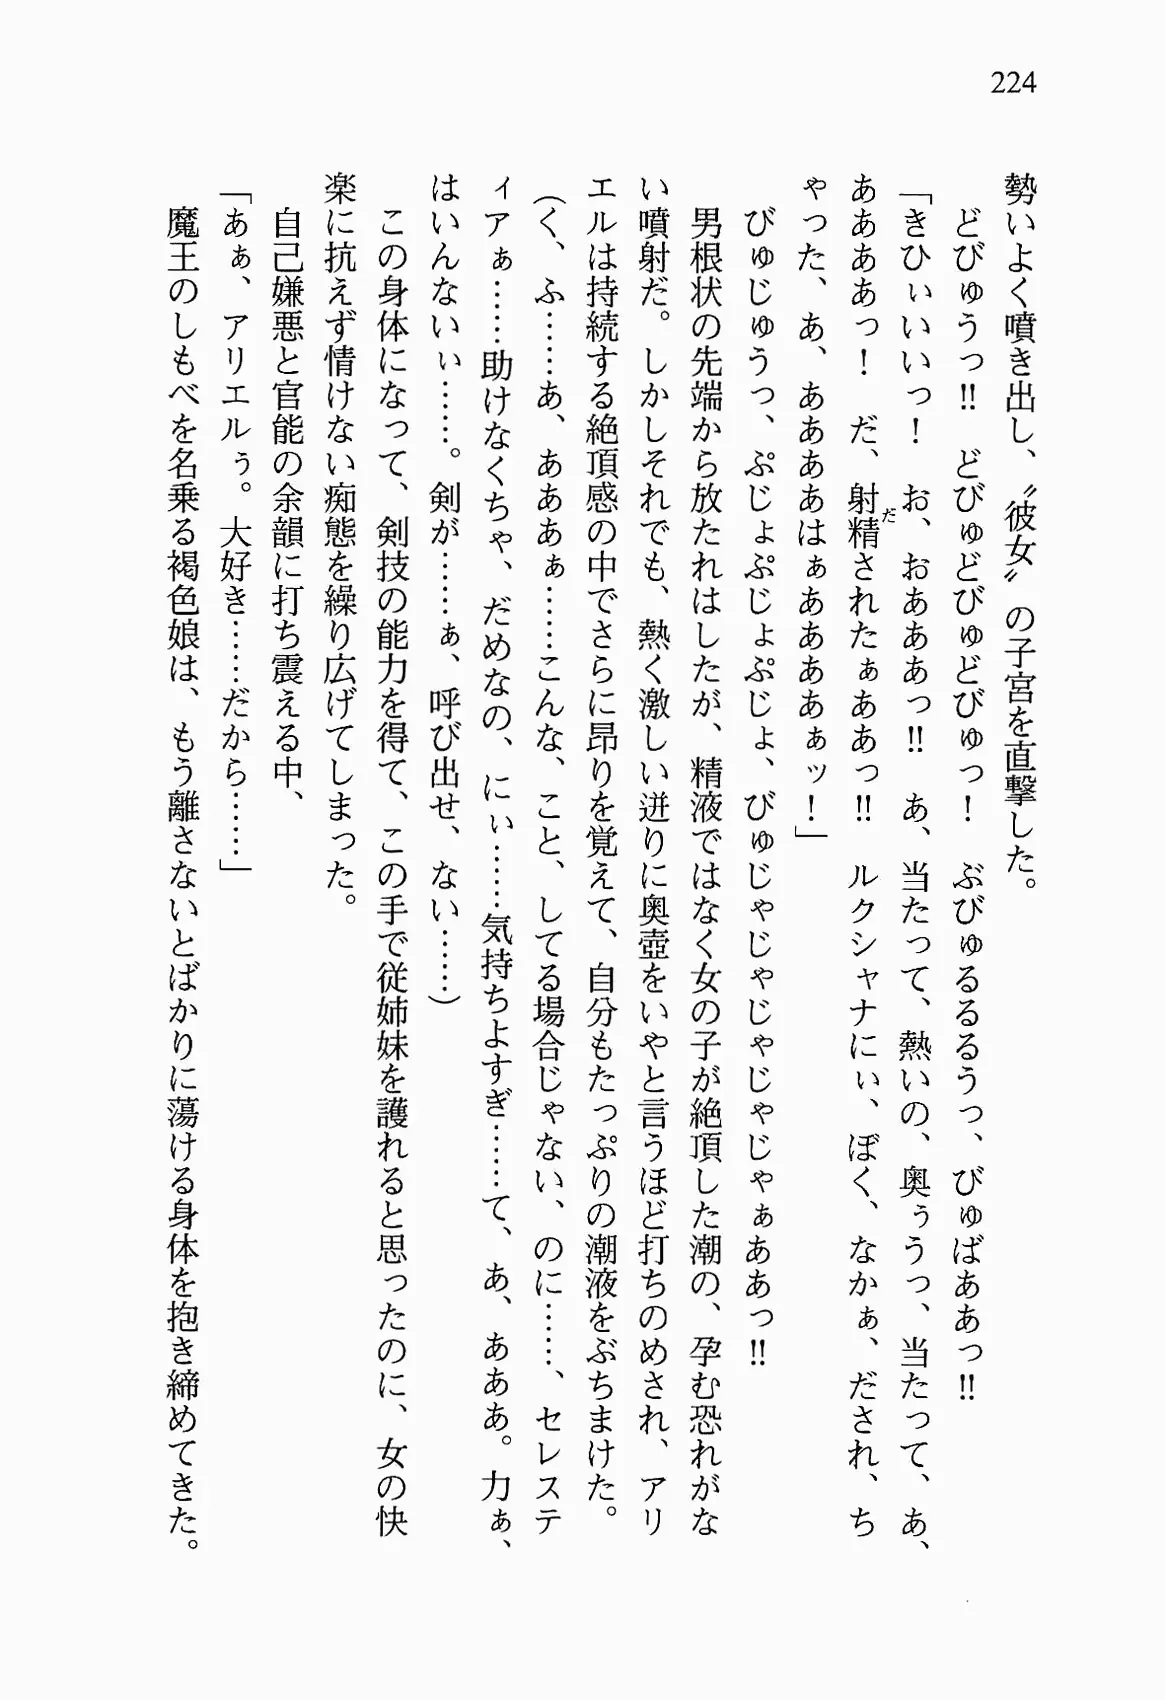 224
勢いよく噴き出し、〝彼女〟の子宮を直撃した。
どびゅうっ!! どびゅどびゅどびゅっ！ ぶびゅるるるうっ、びゅばああっ!!
「きひぃいいっ！ お、おあああっ!! あ、当たって、熱いの、奥ぅうっ、当たって、あ、
ああああっ！ だ、射精されたぁああっ!! ルクシャナにぃ、ぼく、なかぁ、だされ、ち
ゃった、あ、ああああはぁああああぁッ！」
びゅじゅうっ、ぷじょぷじょぷじょ、びゅじゃじゃじゃじゃじゃぁああっ!!
男根状の先端から放たれはしたが、精液ではなく女の子が絶頂した潮の、孕む恐れがな
い噴射だ。しかしそれでも、熱く激しい迸りに奥壺をいやと言うほど打ちのめされ、アリ
エルは持続する絶頂感の中でさらに昂りを覚えて、自分もたっぷりの潮液をぶちまけた。
（く、ふ……あ、あああぁ……こんな、こと、してる場合じゃない、のに……、セレステ
ィアぁ……助けなくちゃ、だめなの、にぃ……気持ちよすぎ……て、あ、あああ。力ぁ、
はいんないぃ……。剣が……ぁ、呼び出せ、ない……）
この身体になって、剣技の能力を得て、この手で従姉妹を護れると思ったのに、女の快
楽に抗えず情けない痴態を繰り広げてしまった。
自己嫌悪と官能の余韻に打ち震える中、
「あぁ、アリエルぅ。大好き……だから……」
魔王のしもべを名乗る褐色娘は、もう離さないとばかりに蕩ける身体を抱き締めてきた。